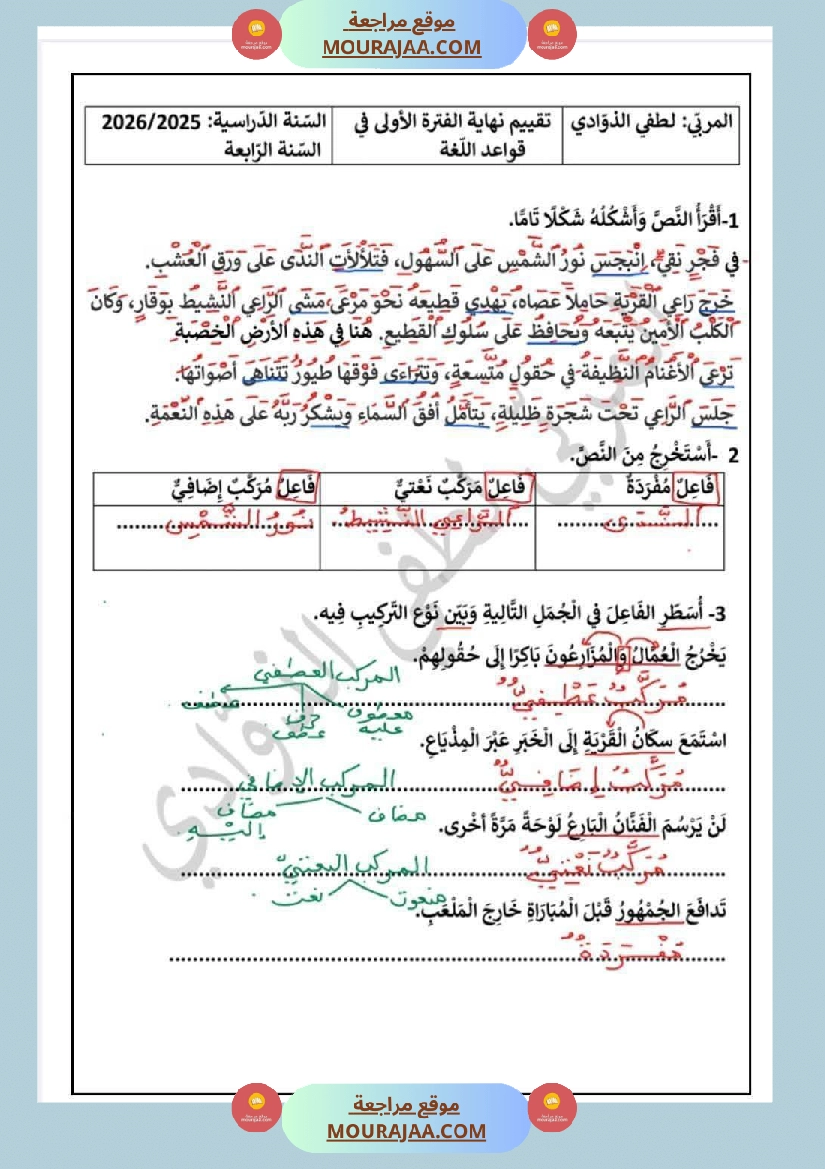 موقع مراجعة
MOURAJAA.COM
المربّي: لطفي الذوّادي
تقييم نهاية الفترة الأولى في قواعد اللّغة
السّنة الدّراسية: 2026/2025
السّنة الرّابعة
1-أَقْرَأُ النَّصَّ وَأَشْكُلُهُ شَكْلًا تَامًّا.
في فَجْرٍ نَقِيٍّ، اِنْبَجَسَ نُورُ الشَّمْسِ عَلَى السُّهُولِ، فَتَلَأْلَأَتِ النَّدَى عَلَى وَرَقِ الْعُشْبِ.
خَرَجَ رَاعِي الْقَرْيَةِ حَامِلًا عَصَاهُ، يَهْدِي قَطِيعَهُ نَحْوَ مَرْعَى، مَشَى الرَّاعِي النَّشِيطُ بِوَقَارٍ، وَكَانَ
الْكَلْبُ الْأَمِينُ يَتْبَعُهُ وَيُحَافِظُ عَلَى سُلُوكِ الْقَطِيعِ. هُنَا فِي هَذِهِ الْأَرْضِ الْخَصْبَةِ
تَرْعَى الْأَغْنَامُ النَّظِيفَةُ فِي حُقُولٍ مُتَّسِعَةٍ، وَتَتَرَاءَى فَوْقَهَا طُيُورٌ تَتَنَاهَى أَصْوَاتُهَا.
جَلَسَ الرَّاعِي تَحْتَ شَجَرَةٍ ظَلِيلَةٍ، يَتَأَمَّلُ أُفُقَ السَّمَاءِ وَيَشْكُرُ رَبَّهُ عَلَى هَذِهِ النِّعْمَةِ.
2 -أَسْتَخْرِجُ مِنَ النَّصِّ.
فَاعِلٌ مُفْرَدَةٌ
فَاعِلٌ مَرَكَّبٌ نَعْتيٌّ
فَاعِلٌ مُرَكَّبٌ إِضَافِيٌّ
النَّدَى
الرَّاعِي النَّشِيطُ
نُورُ الشَّمْسِ
3- أُسَطِّرِ الفَاعِلَ فِي الْجُمَلِ التَّالِيةِ وَبَيِّن نَوْع التَّرْكِيبِ فِيه.
يَخْرُجُ الْعُمَّالُ وَالْمُزَارِعُونَ بَاكِرًا إِلَى حُقُولِهِمْ.
مُرَكَّبٌ عَطْفِيٌّ
المركب العطفي
معطوف عليه
حرف عطف
معطوف
اسْتَمَعَ سكَانُ الْقَرْيَةِ إِلَى الْخَبَرِ عَبْرَ المِذْيَاعِ.
مُرَكَّبٌ إِضَافِيٌّ
المركب الإضافي
مضاف
مضاف إليه
لَنْ يَرْسُمَ الْفَنَّانُ الْبَارِعُ لَوْحَةً مَرَّةً أخْرى.
مُرَكَّبٌ نَعْتِيٌّ
المركب النعتي
منعوت
نعت
تَدافَعَ الجُمْهُورُ قَبْلَ الْمُبَارَاةِ خَارِجَ الْمَلْعَبِ.
مُفْرَدَةٌ
المربّي لطفي الذوّادي
موقع مراجعة
MOURAJAA.COM